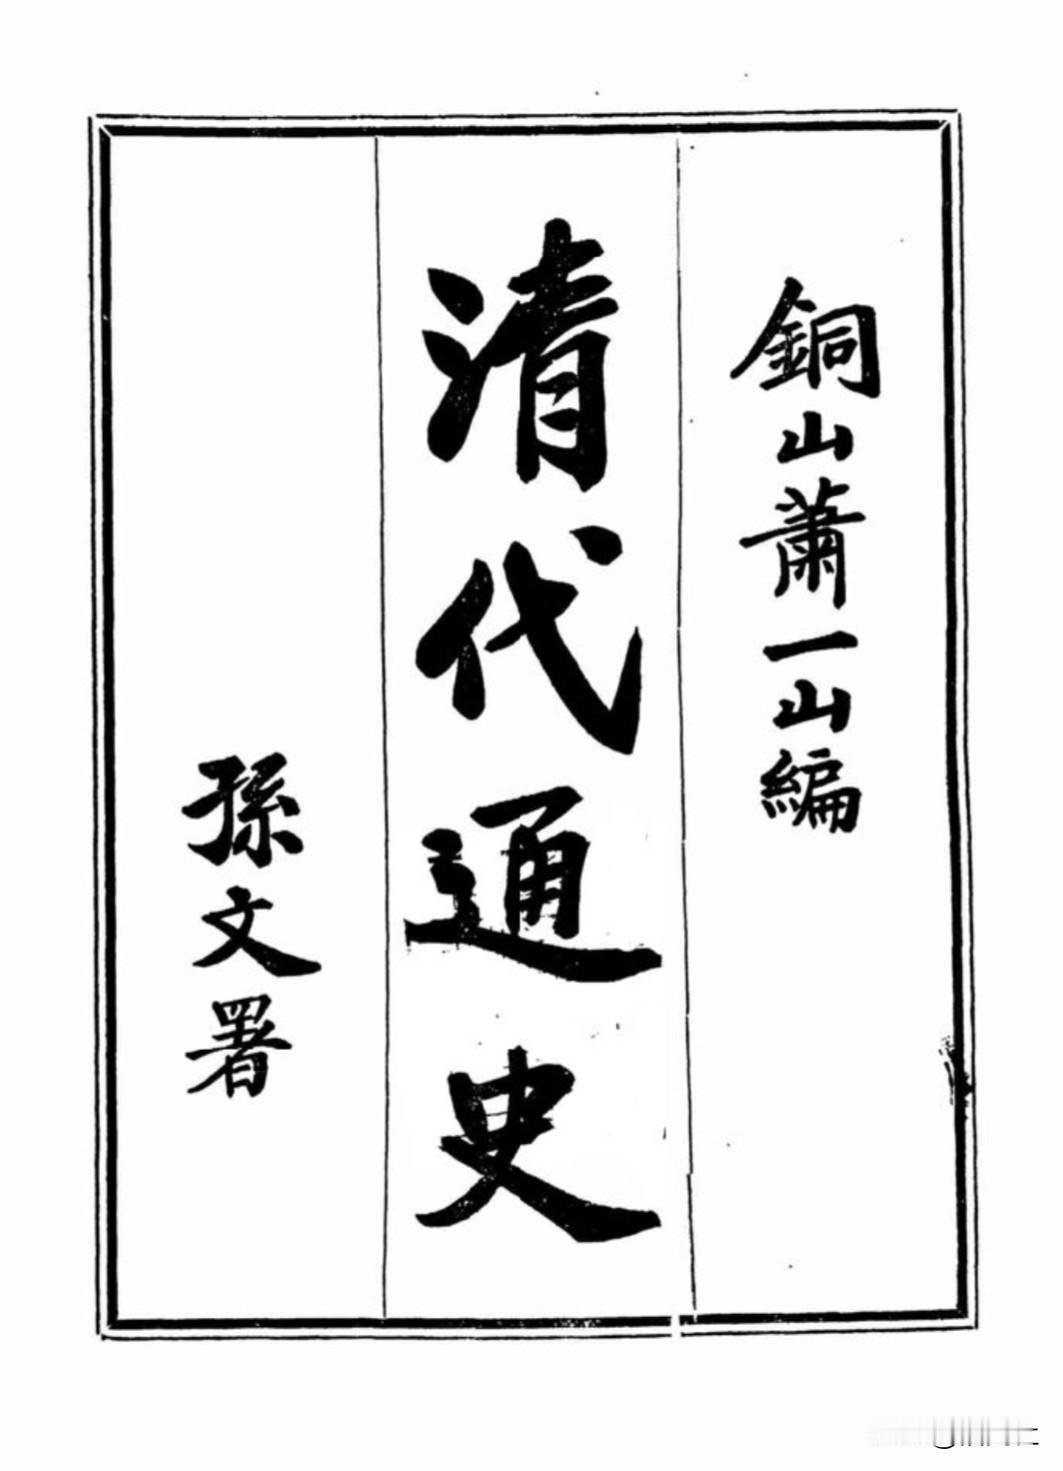 銅山蕭一山編
清代通史
孫文署